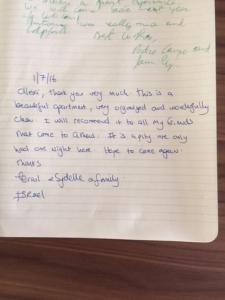 We will come back next year
really nice and
helpfull
Best wishes,
Pedro
and
family
1/7/16
thank you very much this is a
beautiful apartment, very organised and wonderfully
clean I will recommend it to all my friends
that come to Athens. It is a pity we only
had one night here. Hope to come again.
Thanks
& Sydelle & family
ISRael